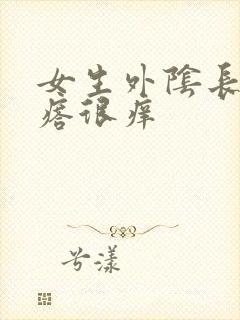 女生外陰長
瘩很痒
兮漾